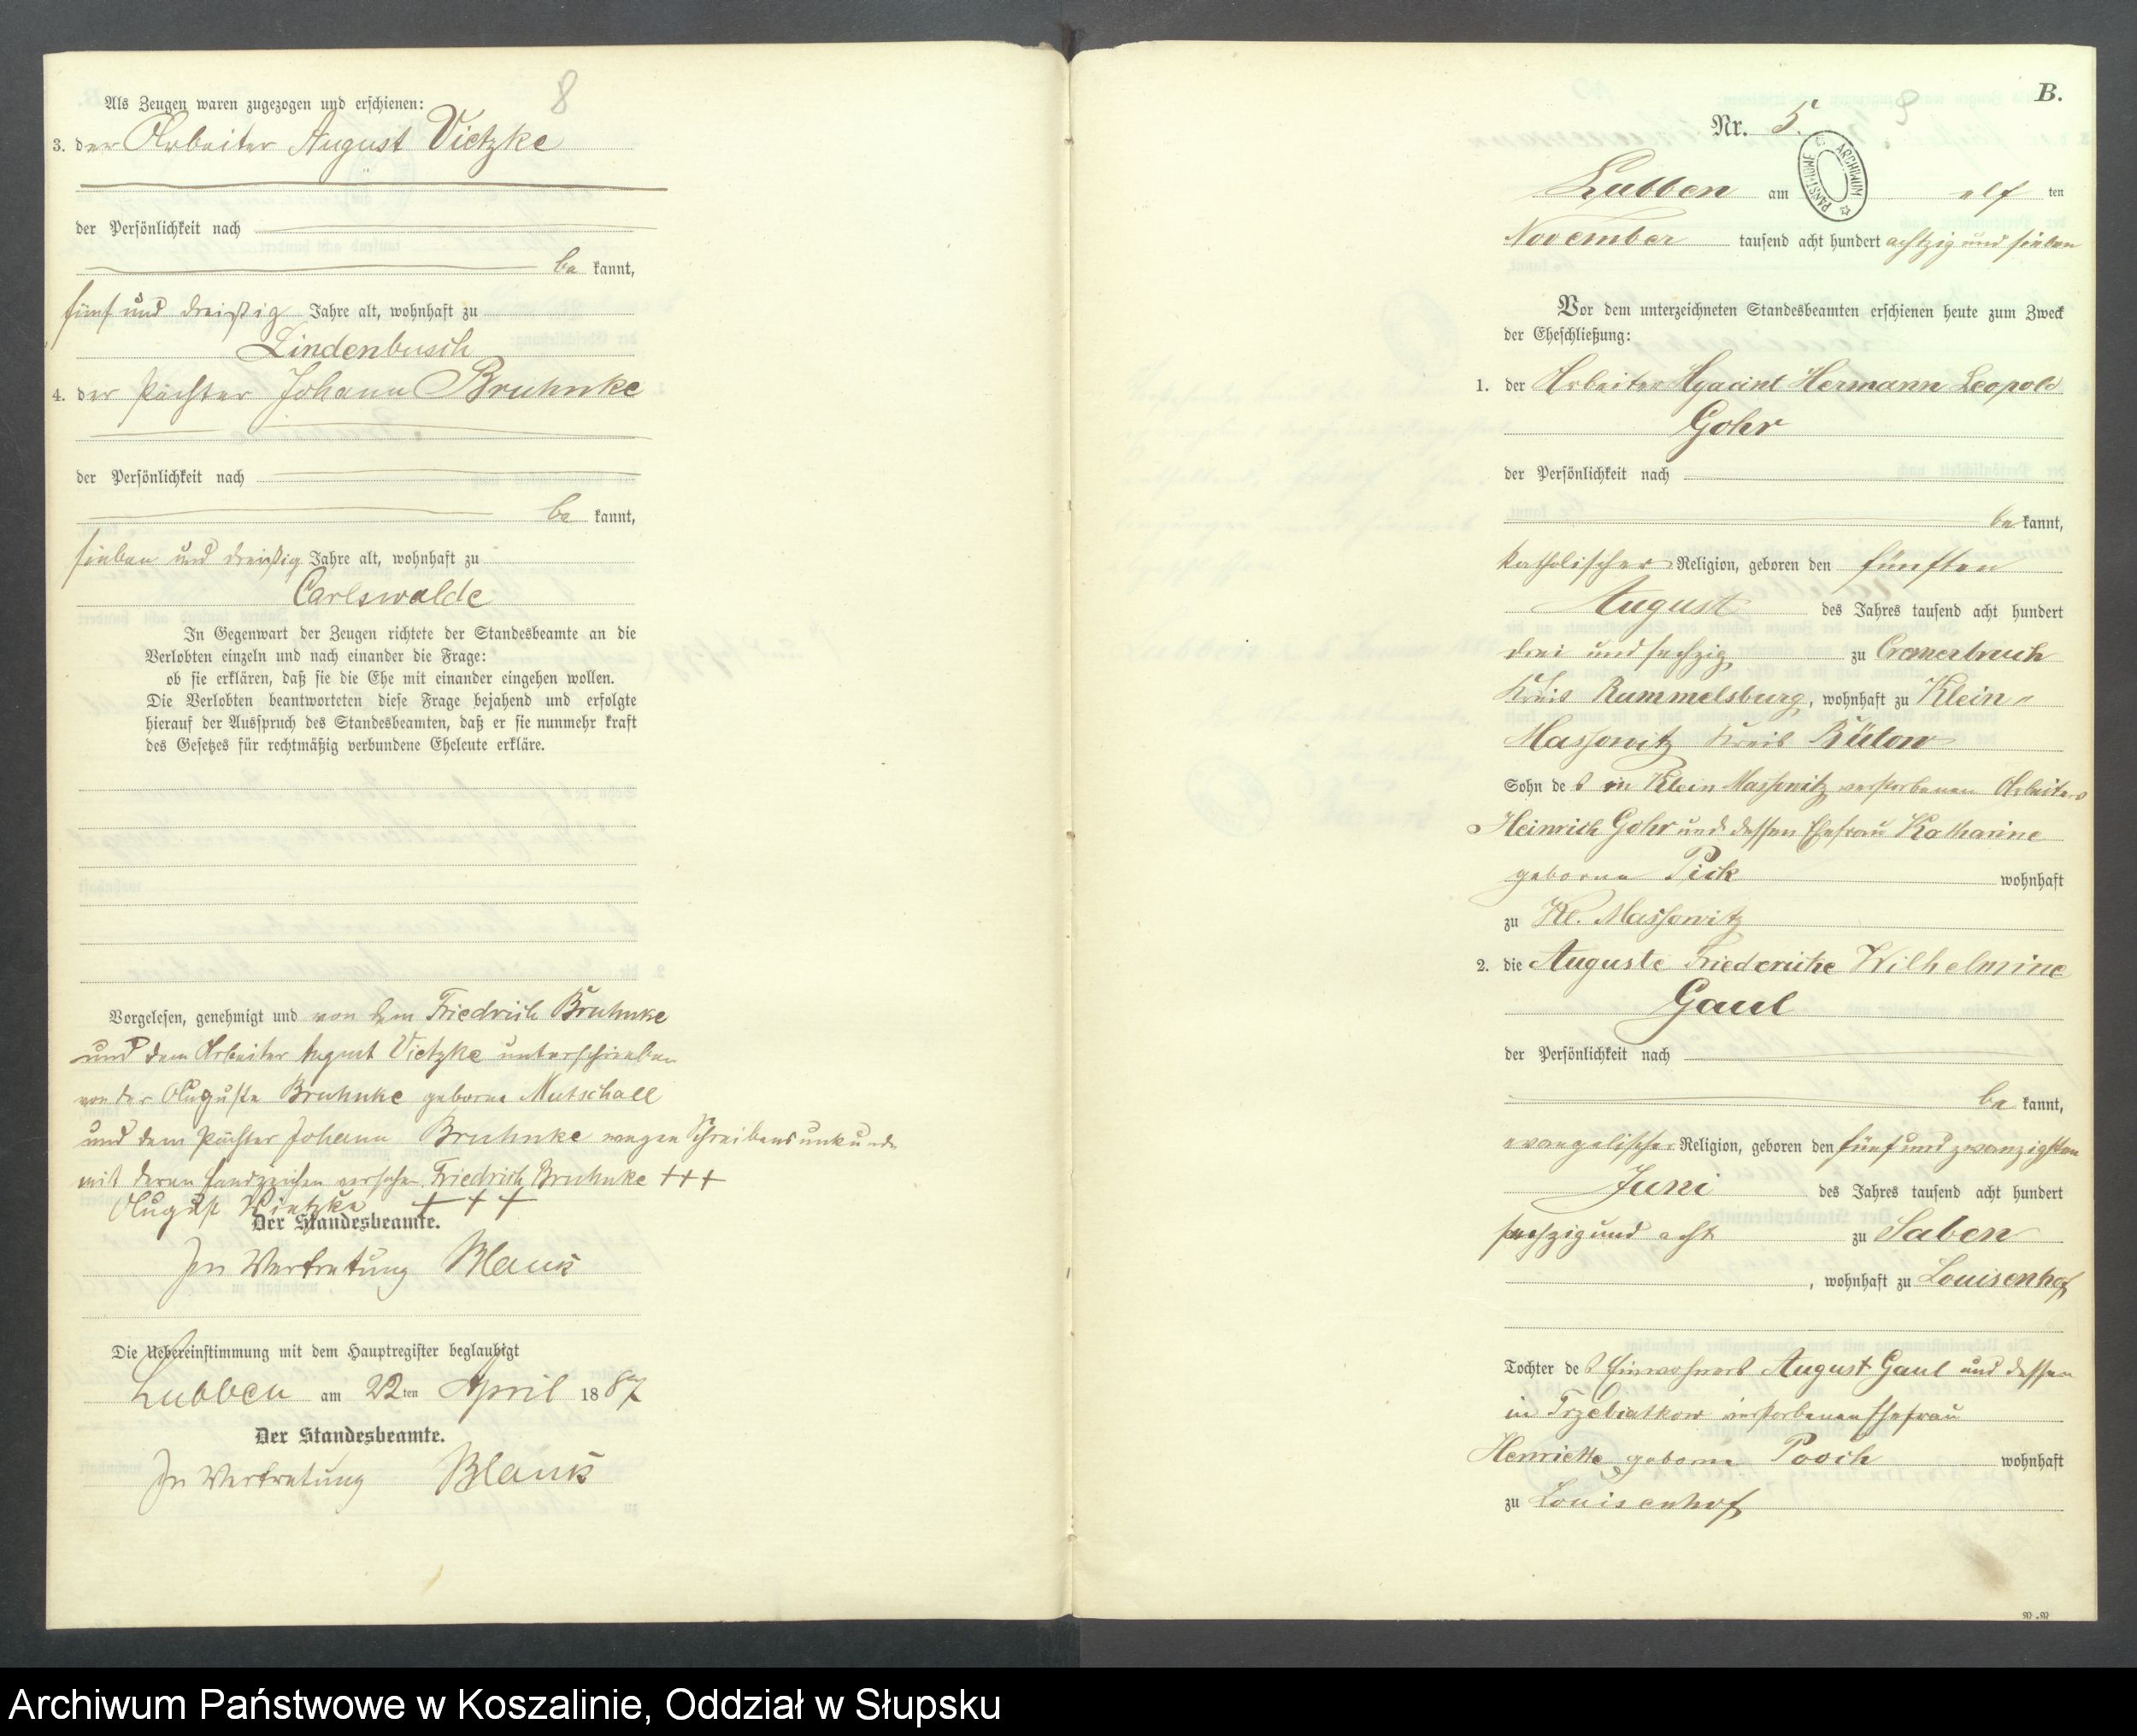 8
Als Zeugen waren zugezogen und erschienen:
3. der Arbeiter August Vietzke
der Persönlichkeit nach
be kannt,
fünf und dreißig Jahre alt, wohnhaft zu
Lindenbusch
4. der Pächter Johann Bruhnke
der Persönlichkeit nach
be kannt,
sieben und dreißig Jahre alt, wohnhaft zu
Carlswalde
In Gegenwart der Zeugen richtete der Standesbeamte an die
Verlobten einzeln und nach einander die Frage:
ob sie erklären, daß sie die Ehe mit einander eingehen wollen.
Die Verlobten beantworteten diese Frage bejahend und erfolgte
hierauf der Ausspruch des Standesbeamten, daß er sie nunmehr kraft
des Gesetzes für rechtmäßig verbundene Eheleute erkläre.
Vorgelesen, genehmigt und von dem Friedrich Bruhnke
und dem Arbeiter August Vietzke unterschrieben
von der Auguste Bruhnke geborne Mutschall
und dem Pächter Johann Bruhnke wegen Schreibensunkunde
mit deren Handzeichen versehen. Friedrich Bruhnke +++
August Vietzke +++
Der Standesbeamte.
In Vertretung Blank
Die Uebereinstimmung mit dem Hauptregister beglaubigt
Lubben am 22ten April 1887
Der Standesbeamte.
In Vertretung Blank
B.
Nr. 5.
ARCHIWUM PAŃSTWOWE
Lubben am elf ten
November tausend acht hundert achtzig und sieben
Vor dem unterzeichneten Standesbeamten erschienen heute zum Zweck
der Eheschließung:
1. der Arbeiter Hyacint Hermann Leopold
Gohr
der Persönlichkeit nach
be kannt,
katholischer Religion, geboren den fünften
August des Jahres tausend acht hundert
drei und sechzig zu Cremerbruch
Kreis Rummelsburg, wohnhaft zu Klein-
Massowitz Kreis Bütow
Sohn des in Klein Massowitz verstorbenen Arbeiters
Heinrich Gohr und dessen Ehefrau Katharine
geborne Pick wohnhaft
zu Kl. Massowitz
2. die Auguste Friedericke Wilhelmine
Gaul
der Persönlichkeit nach
be kannt,
evangelischer Religion, geboren den fünf und zwanzigsten
Juni des Jahres tausend acht hundert
sechzig und acht zu Saben
, wohnhaft zu Louisenhof
Tochter des Einwohners August Gaul und dessen
in Trzebiatkow verstorbenen Ehefrau
Henriette geborne Pooch wohnhaft
zu Louisenhof
Archiwum Państwowe w Koszalinie, Oddział w Słupsku